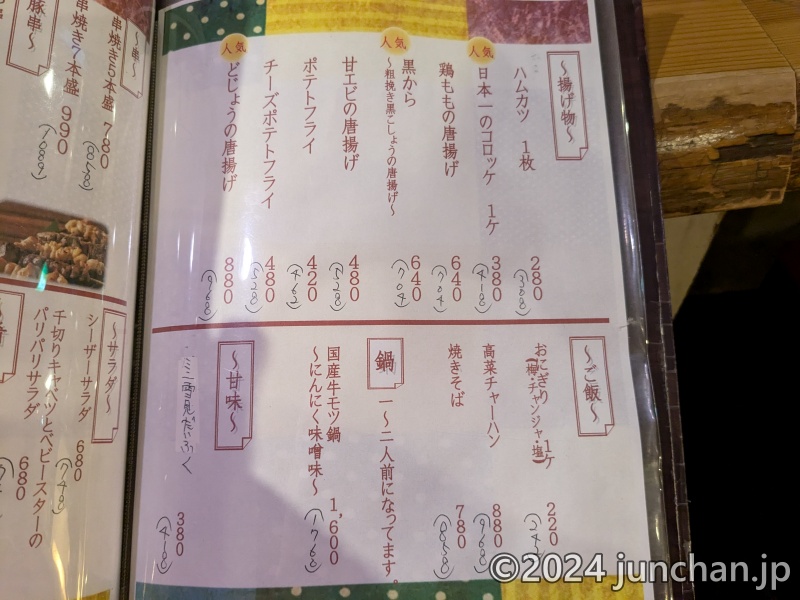 ～揚げ物～
ハムカツ 1枚 280 (308)
人気
日本一のコロッケ 1ケ 380 (418)
鶏ももの唐揚げ 640 (704)
人気
黒から
～粗挽き黒こしょうの唐揚げ～ 640 (704)
甘エビの唐揚げ 480 (528)
ポテトフライ 420 (462)
チーズポテトフライ 480 (528)
人気
どじょうの唐揚げ 880 (968)
～ご飯～
おにぎり 1ケ 220
(梅・チャンジャ・塩)
高菜チャーハン 880 (968)
焼きそば 780 (858)
鍋
一～二人前になってます。
国産牛モツ鍋
～にんにく味噌味～ 1,600 (1760)
～甘味～
ミニ雪見だいふく 380 (418)
～串～
串焼き5本盛 780 (858)
串焼き7本盛 990 (1089)
豚串～
～サラダ～
シーザーサラダ 680 (748)
千切りキャベツとベビースターの
パリパリサラダ 680
©2024 junchan.jp